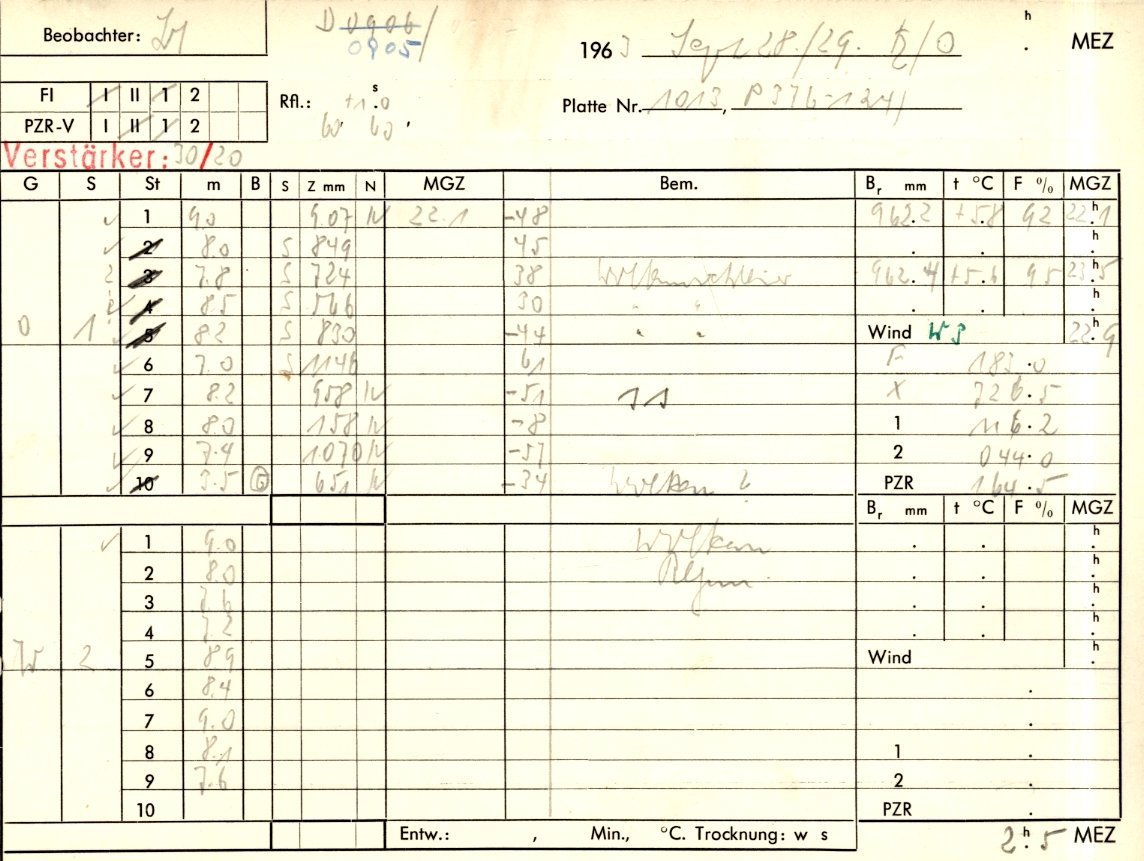 Beobachter:
D 0906
0905
1963 Sept 28./29. h . MEZ
FI I II 1 2
PZR-V I II 1 2
Rfl.: +1.0 s
Platte Nr. 1013, P376-1241
Verstärker: 30/20
G S St m B S Z mm N MGZ Bem. Br mm t °C F % MGZ
✓ 1 9.0 907 N 22.1 -48 962.2 +5.8 92 22.1 h
✓ 2 8.0 S 849 45 . . h
2 3 7.8 S 724 38 Wolkenschleier 962.4 +5.6 95 23.5 h
4 8.5 S 566 30 " " . . h
0 1 ✓ 5 8.2 S 830 -44 " " Wind W3 22.9 h
✓ 6 7.0 S 1146 61 F 183.0
✓ 7 8.2 958 N -51 X 726.5
✓ 8 8.0 158 N -8 1 116.2
✓ 9 7.4 1070 N -57 2 044.0
✓ 10 3.5 G 651 N -34 Wolken PZR 164.5
Br mm t °C F % MGZ
✓ 1 9.0 Wolken . . h
2 8.0 Regen . . h
3 7.6 . . h
4 7.2 . . h
W 2 5 8.9 Wind h
6 8.4 .
7 9.0 .
8 8.1 1 .
9 7.6 2 .
10 PZR .
Entw.: , Min., °C. Trocknung: w s 2.5 h MEZ